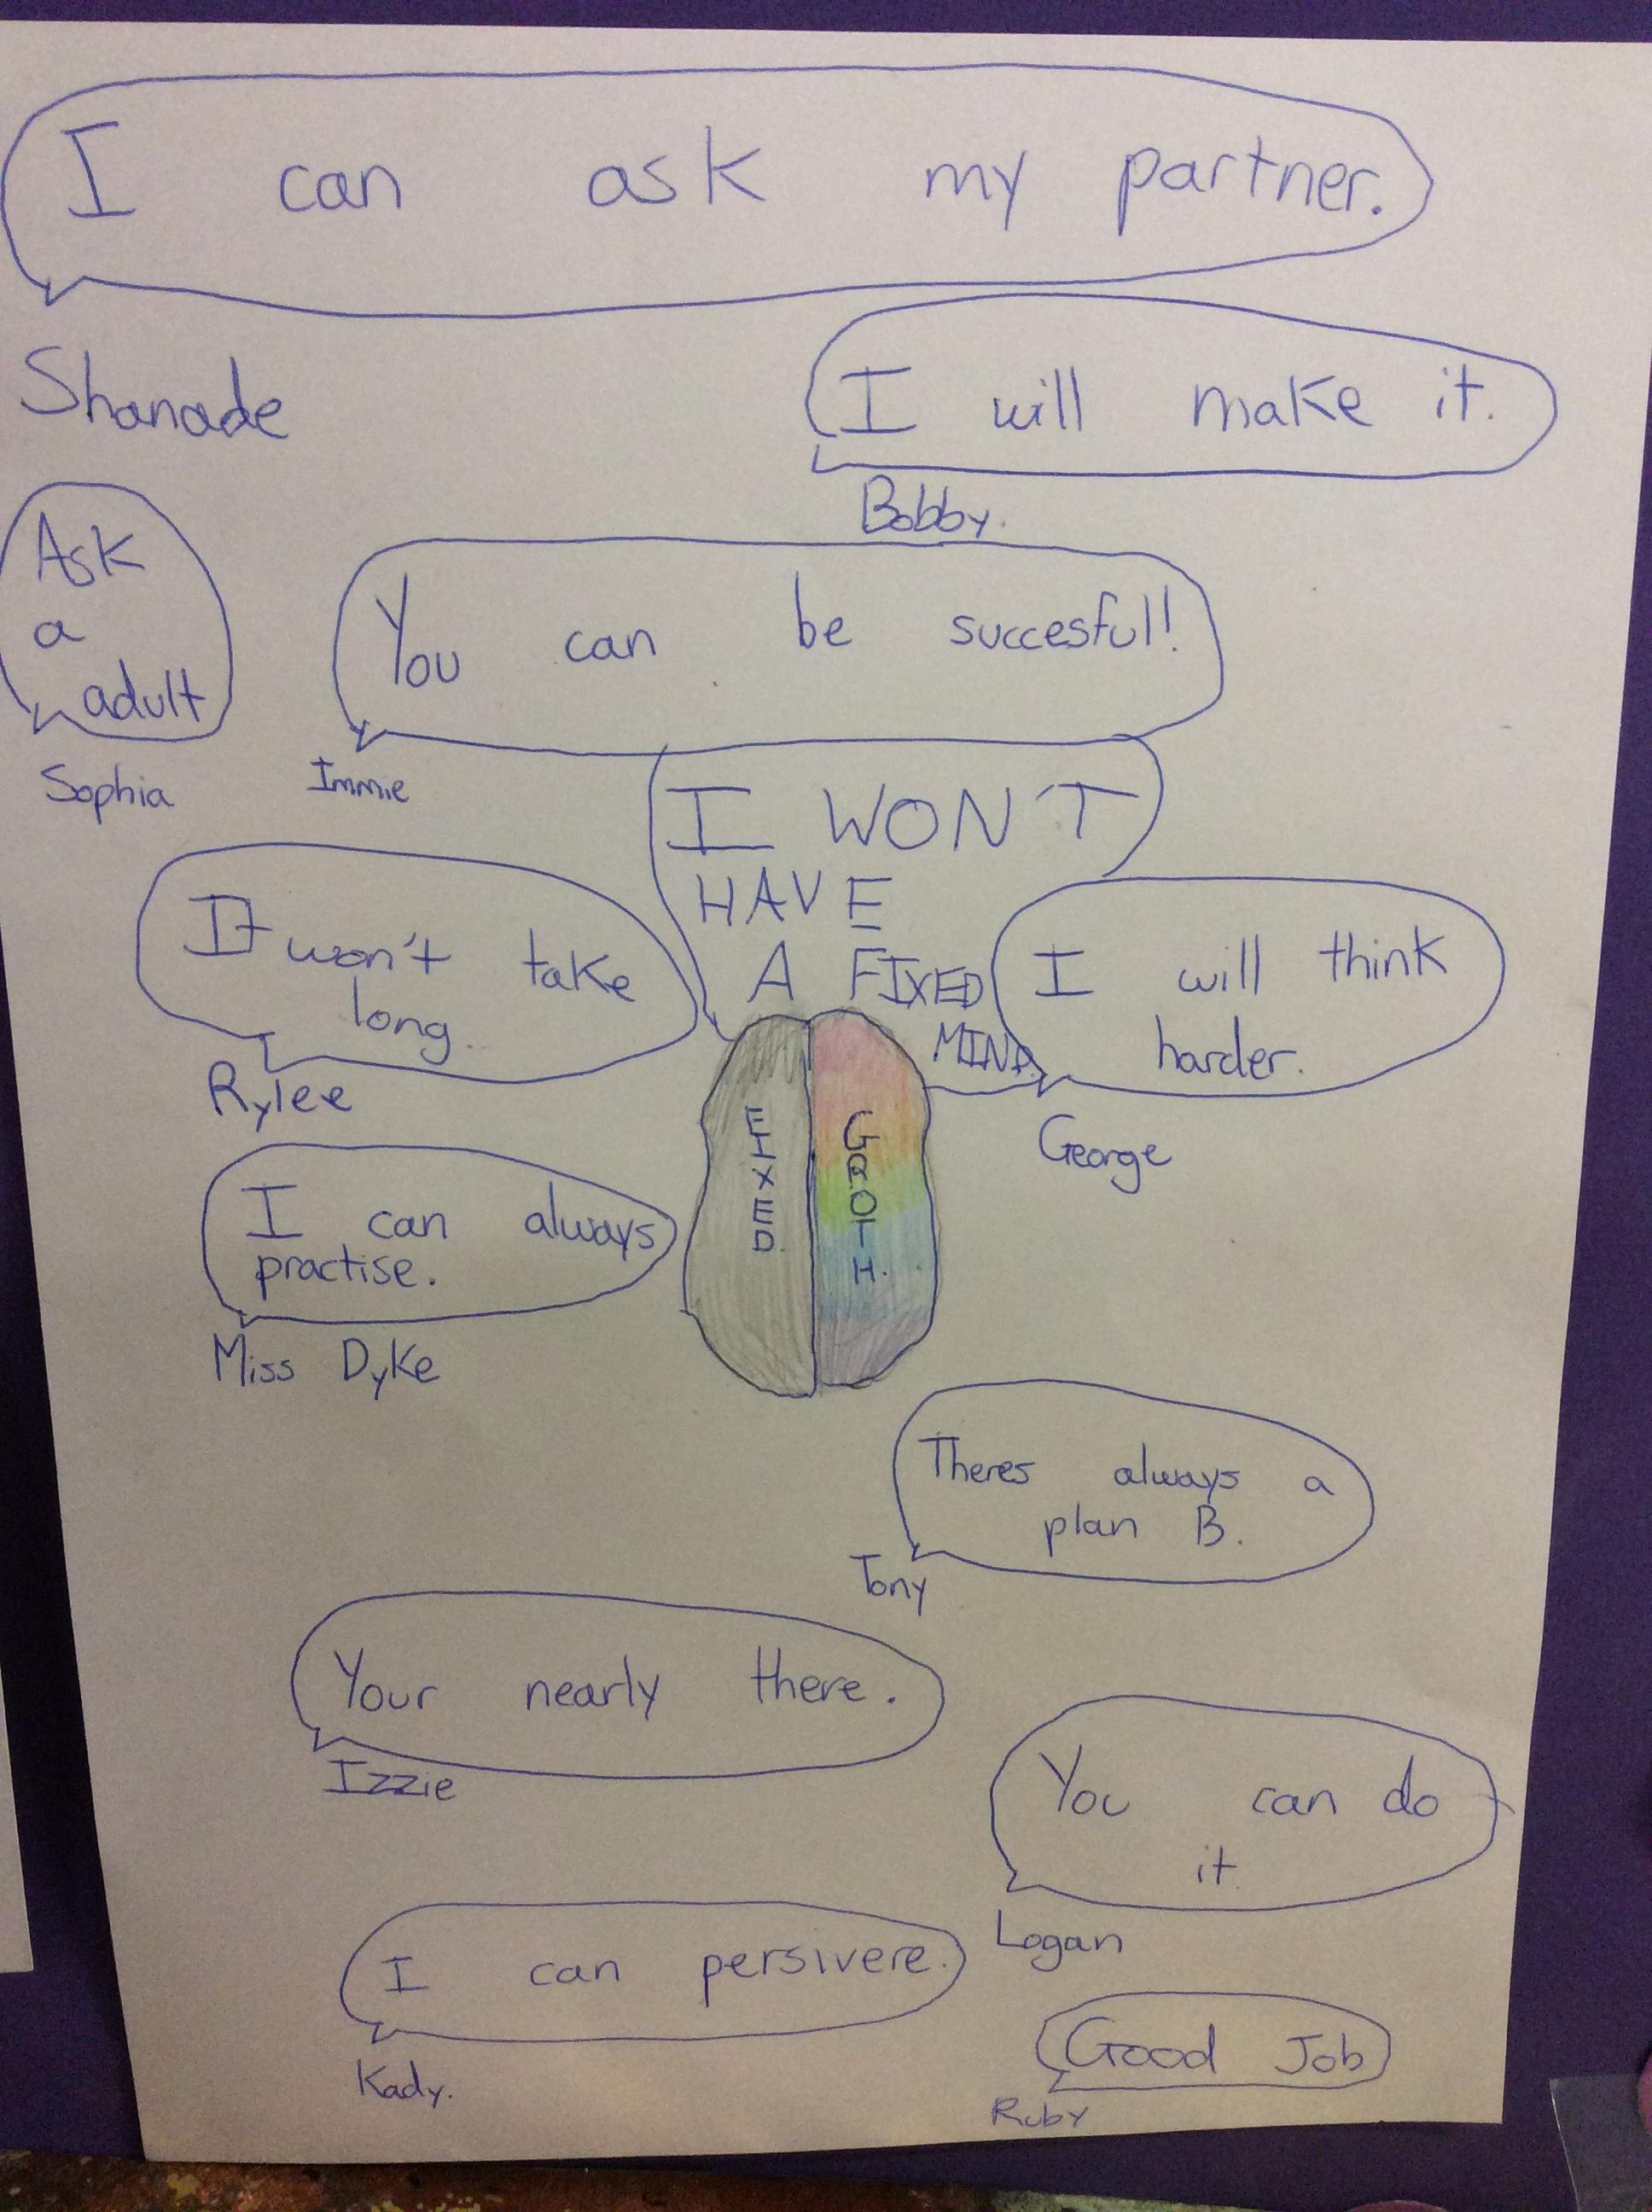 I can ask my partner.
Shanade
I will make it.
Bobby.
Ask
a
adult
Sophia
You can be succesful!
Immie
I WON'T
HAVE
A FIXED
MIND.
It won't take
long.
Rylee
I will think
harder.
George
FIXED.
GROTH.
I can always
practise.
Miss Dyke
Theres always a
plan B.
Tony
Your nearly there.
Izzie
You can do
it.
Logan
I can persivere.
Kady.
Good Job
Ruby